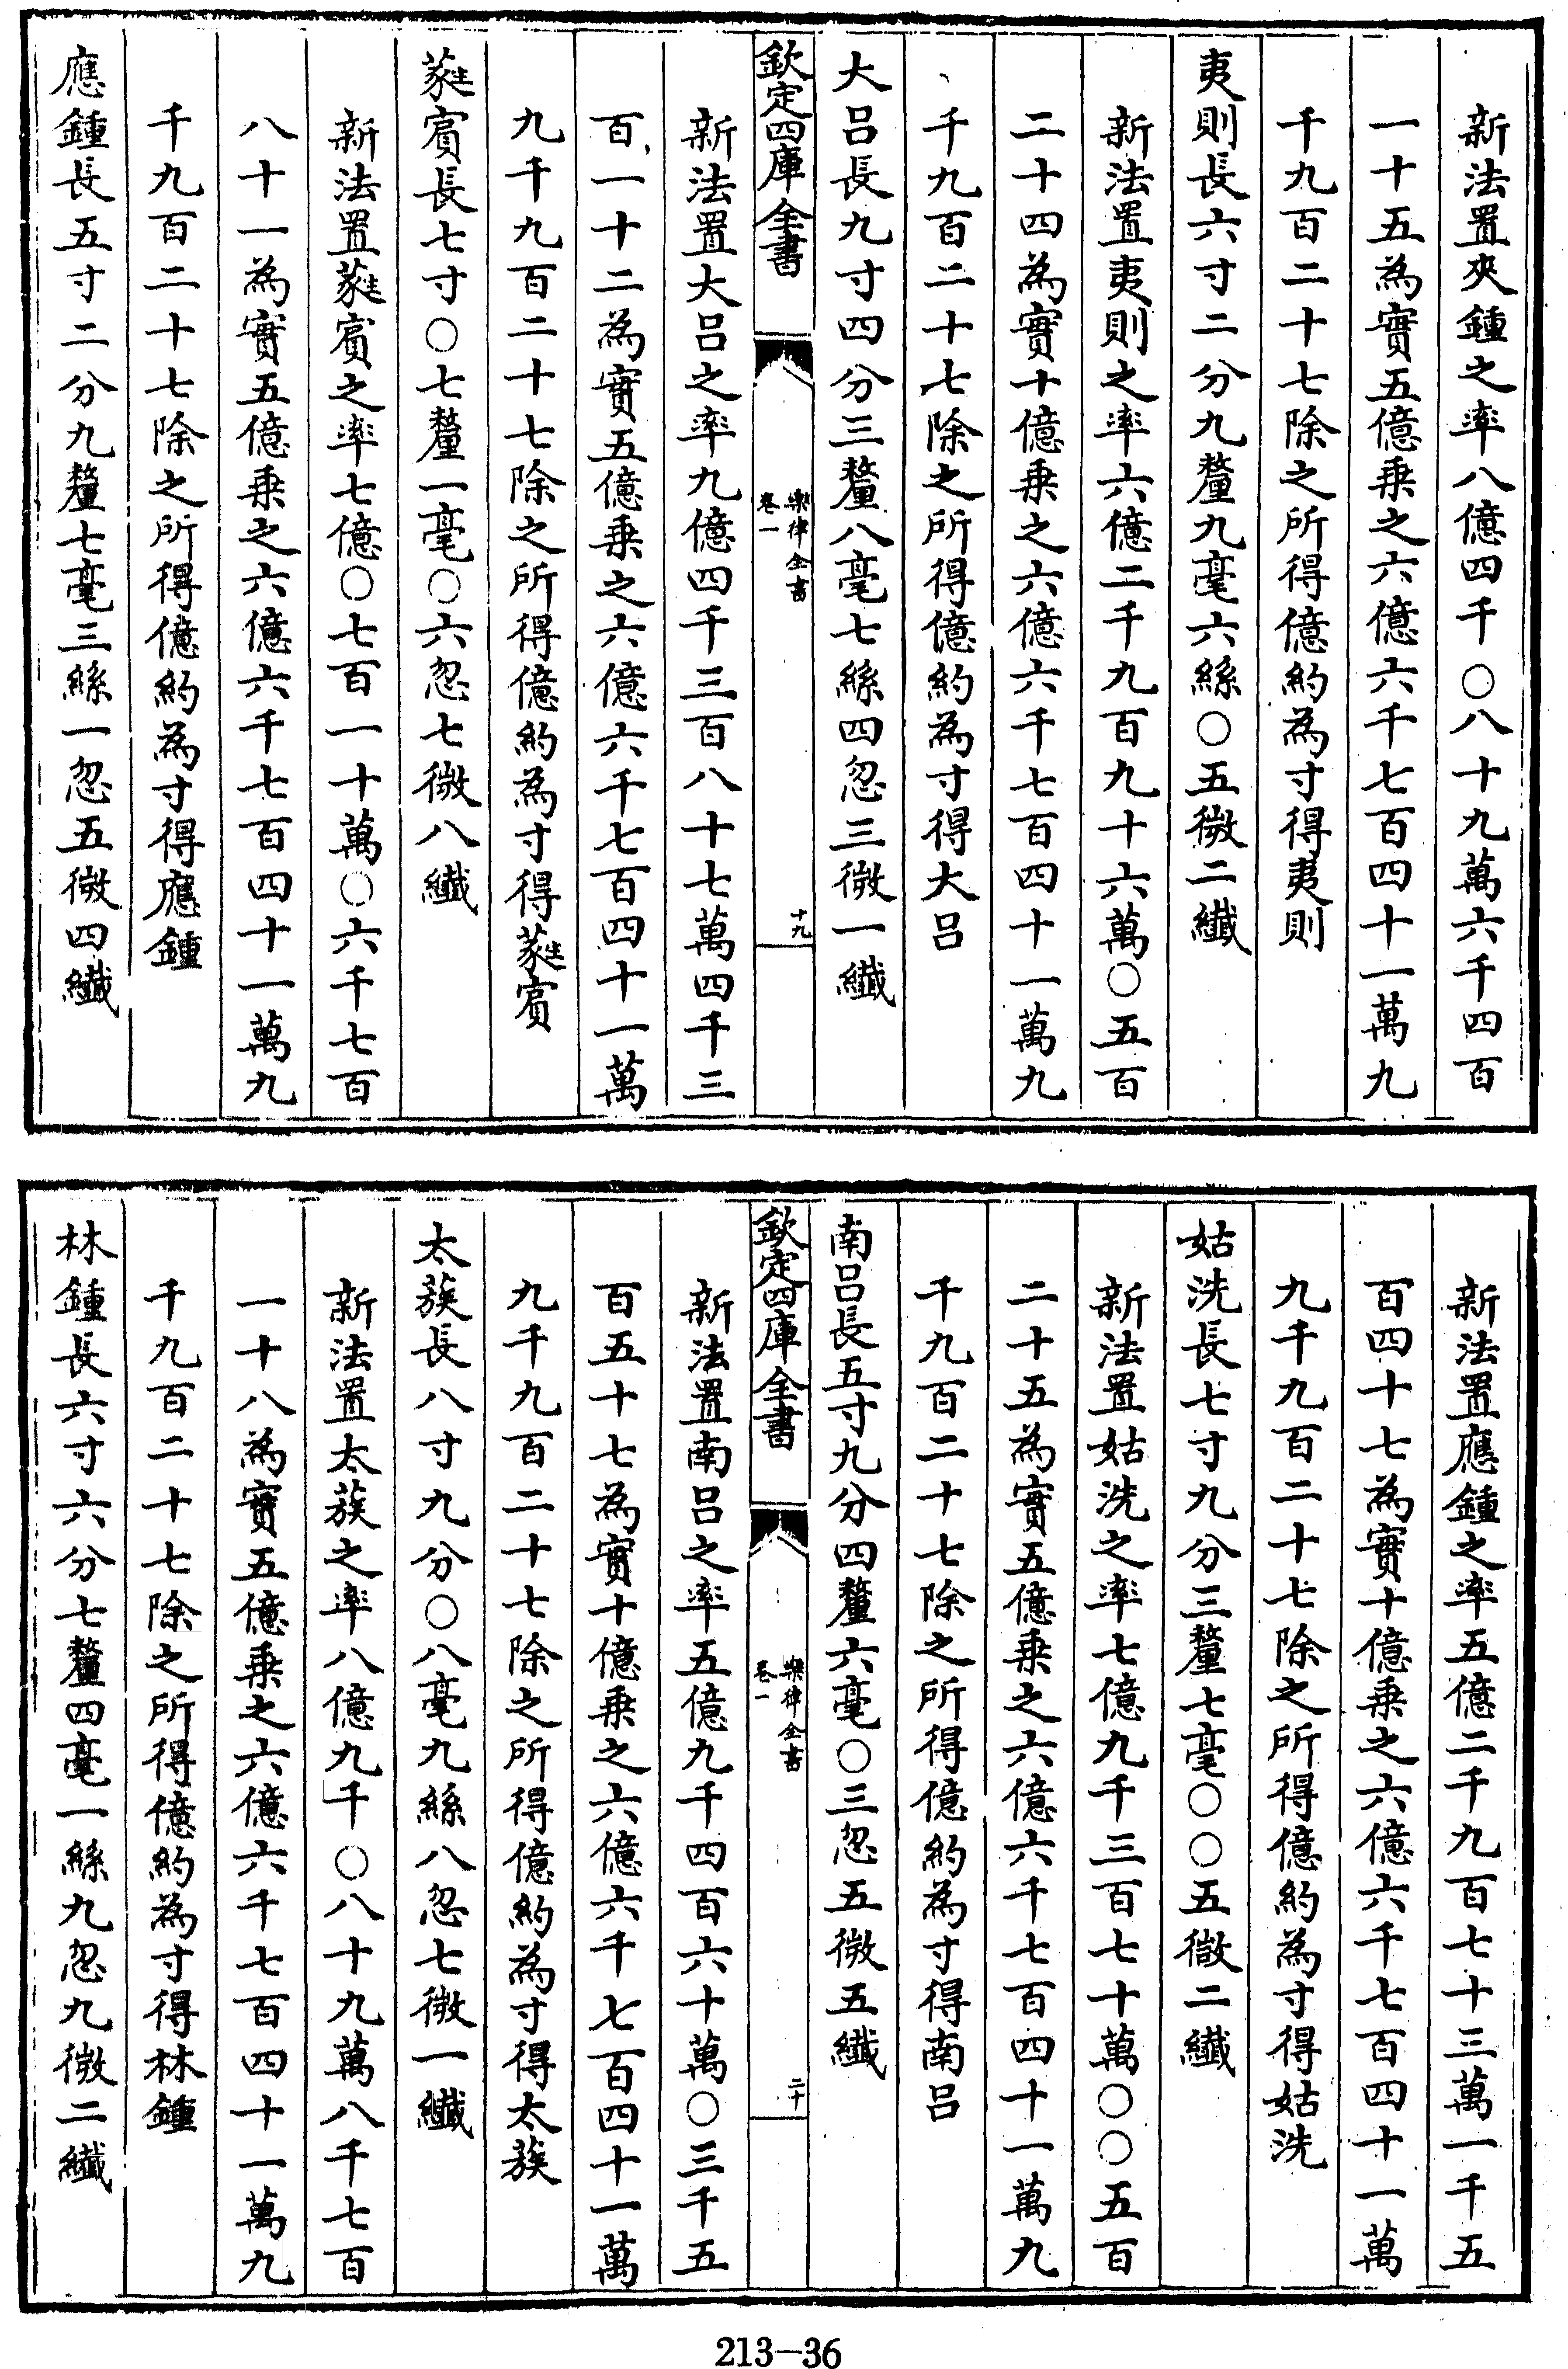 新法置夾鍾之率八億四千〇八十九萬六千四百
一十五為實五億乗之六億六千七百四十一萬九
千九百二十七除之所得億約為寸得夷則
夷則長六寸二分九釐九毫六絲〇五微二纎
新法置夷則之率六億二千九百九十六萬〇五百
二十四為實十億乗之六億六千七百四十一萬九
千九百二十七除之所得億約為寸得大吕
大吕長九寸四分三釐八毫七絲四忽三微一纎
欽定四庫全書
樂律全書
卷一
十九
新法置大吕之率九億四千三百八十七萬四千三
百一十二為實五億乗之六億六千七百四十一萬
九千九百二十七除之所得億約為寸得蕤賔
蕤賔長七寸〇七釐一毫〇六忽七微八纎
新法置蕤賔之率七億〇七百一十萬〇六千七百
八十一為實五億乗之六億六千七百四十一萬九
千九百二十七除之所得億約為寸得應鍾
應鍾長五寸二分九釐七毫三絲一忽五微四纎
新法置應鍾之率五億二千九百七十三萬一千五
百四十七為實十億乗之六億六千七百四十一萬
九千九百二十七除之所得億約為寸得姑洗
姑洗長七寸九分三釐七毫〇〇五微二纎
新法置姑洗之率七億九千三百七十萬〇〇五百
二十五為實五億乗之六億六千七百四十一萬九
千九百二十七除之所得億約為寸得南吕
南吕長五寸九分四釐六毫〇三忽五微五纎
欽定四庫全書
樂律全書
卷一
二十
新法置南吕之率五億九千四百六十萬〇三千五
百五十七為實十億乗之六億六千七百四十一萬
九千九百二十七除之所得億約為寸得太蔟
太蔟長八寸九分〇八毫九絲八忽七微一纎
新法置太蔟之率八億九千〇八十九萬八千七百
一十八為實五億乗之六億六千七百四十一萬九
千九百二十七除之所得億約為寸得林鍾
林鍾長六寸六分七釐四毫一絲九忽九微二纎
213-36